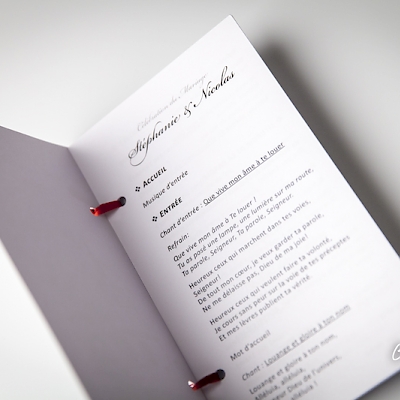 Célébration du Mariage
Stéphanie & Nicolas
❖ ACCUEIL
Musique d'entrée
❖ ENTRÉE
Chant d'entrée : Que vive mon âme à te louer
Refrain:
Que vive mon âme à Te louer !
Tu as posé une lampe, une lumière sur ma route,
Ta parole, Seigneur, Ta parole, Seigneur.
Heureux ceux qui marchent dans tes voies,
Seigneur!
De tout mon cœur, je veux garder ta parole,
Ne me délaisse pas, Dieu de ma joie!
Heureux ceux qui veulent faire ta volonté,
Je cours sans peur sur la voie de tes préceptes
Et mes lèvres publient ta vérité.
Mot d'accueil
Chant : Louange et gloire à ton nom
Louange et gloire à ton nom,
Alléluia, alléluia,
Seigneur Dieu de l'univers,
Alléluia !